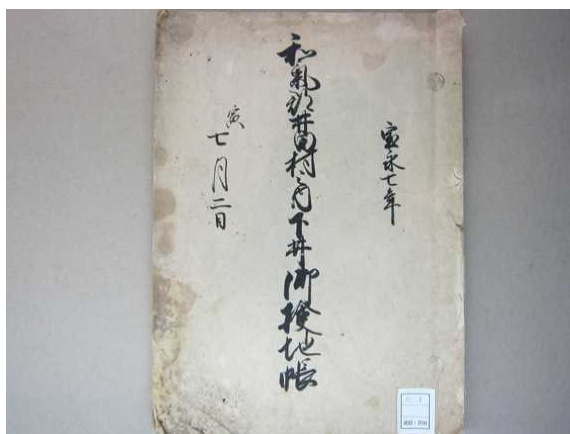 宝永七年
和気郡井田村之内下井御検地帳
寅
七月二日